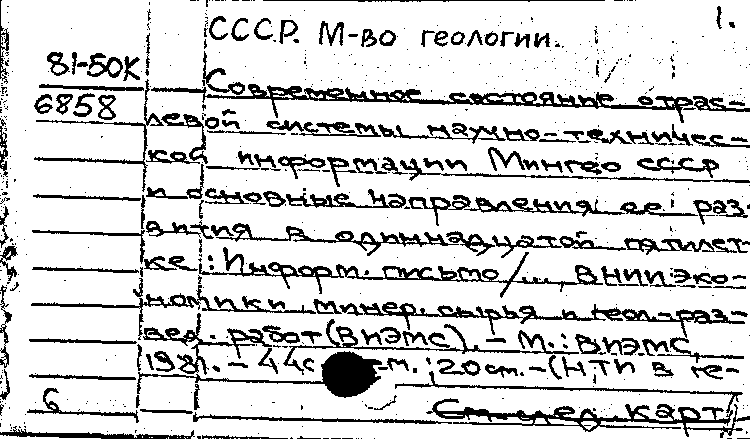 1.
СССР. М-во геологии.
81-50К
Современное состояние отрас-
6858
левой системы научно-техничес-
кой информации Мингео СССР
и основные направления ее раз-
вития в одиннадцатой пятилет-
ке: Информ. письмо/..., ВНИИ эко-
номики минер. сырья и геол.-раз-
вед. работ (ВИЭМС). - М.: ВИЭМС,
1981. - 44с ; 20 см. - (НТИ в ге-
6
См. след. карт